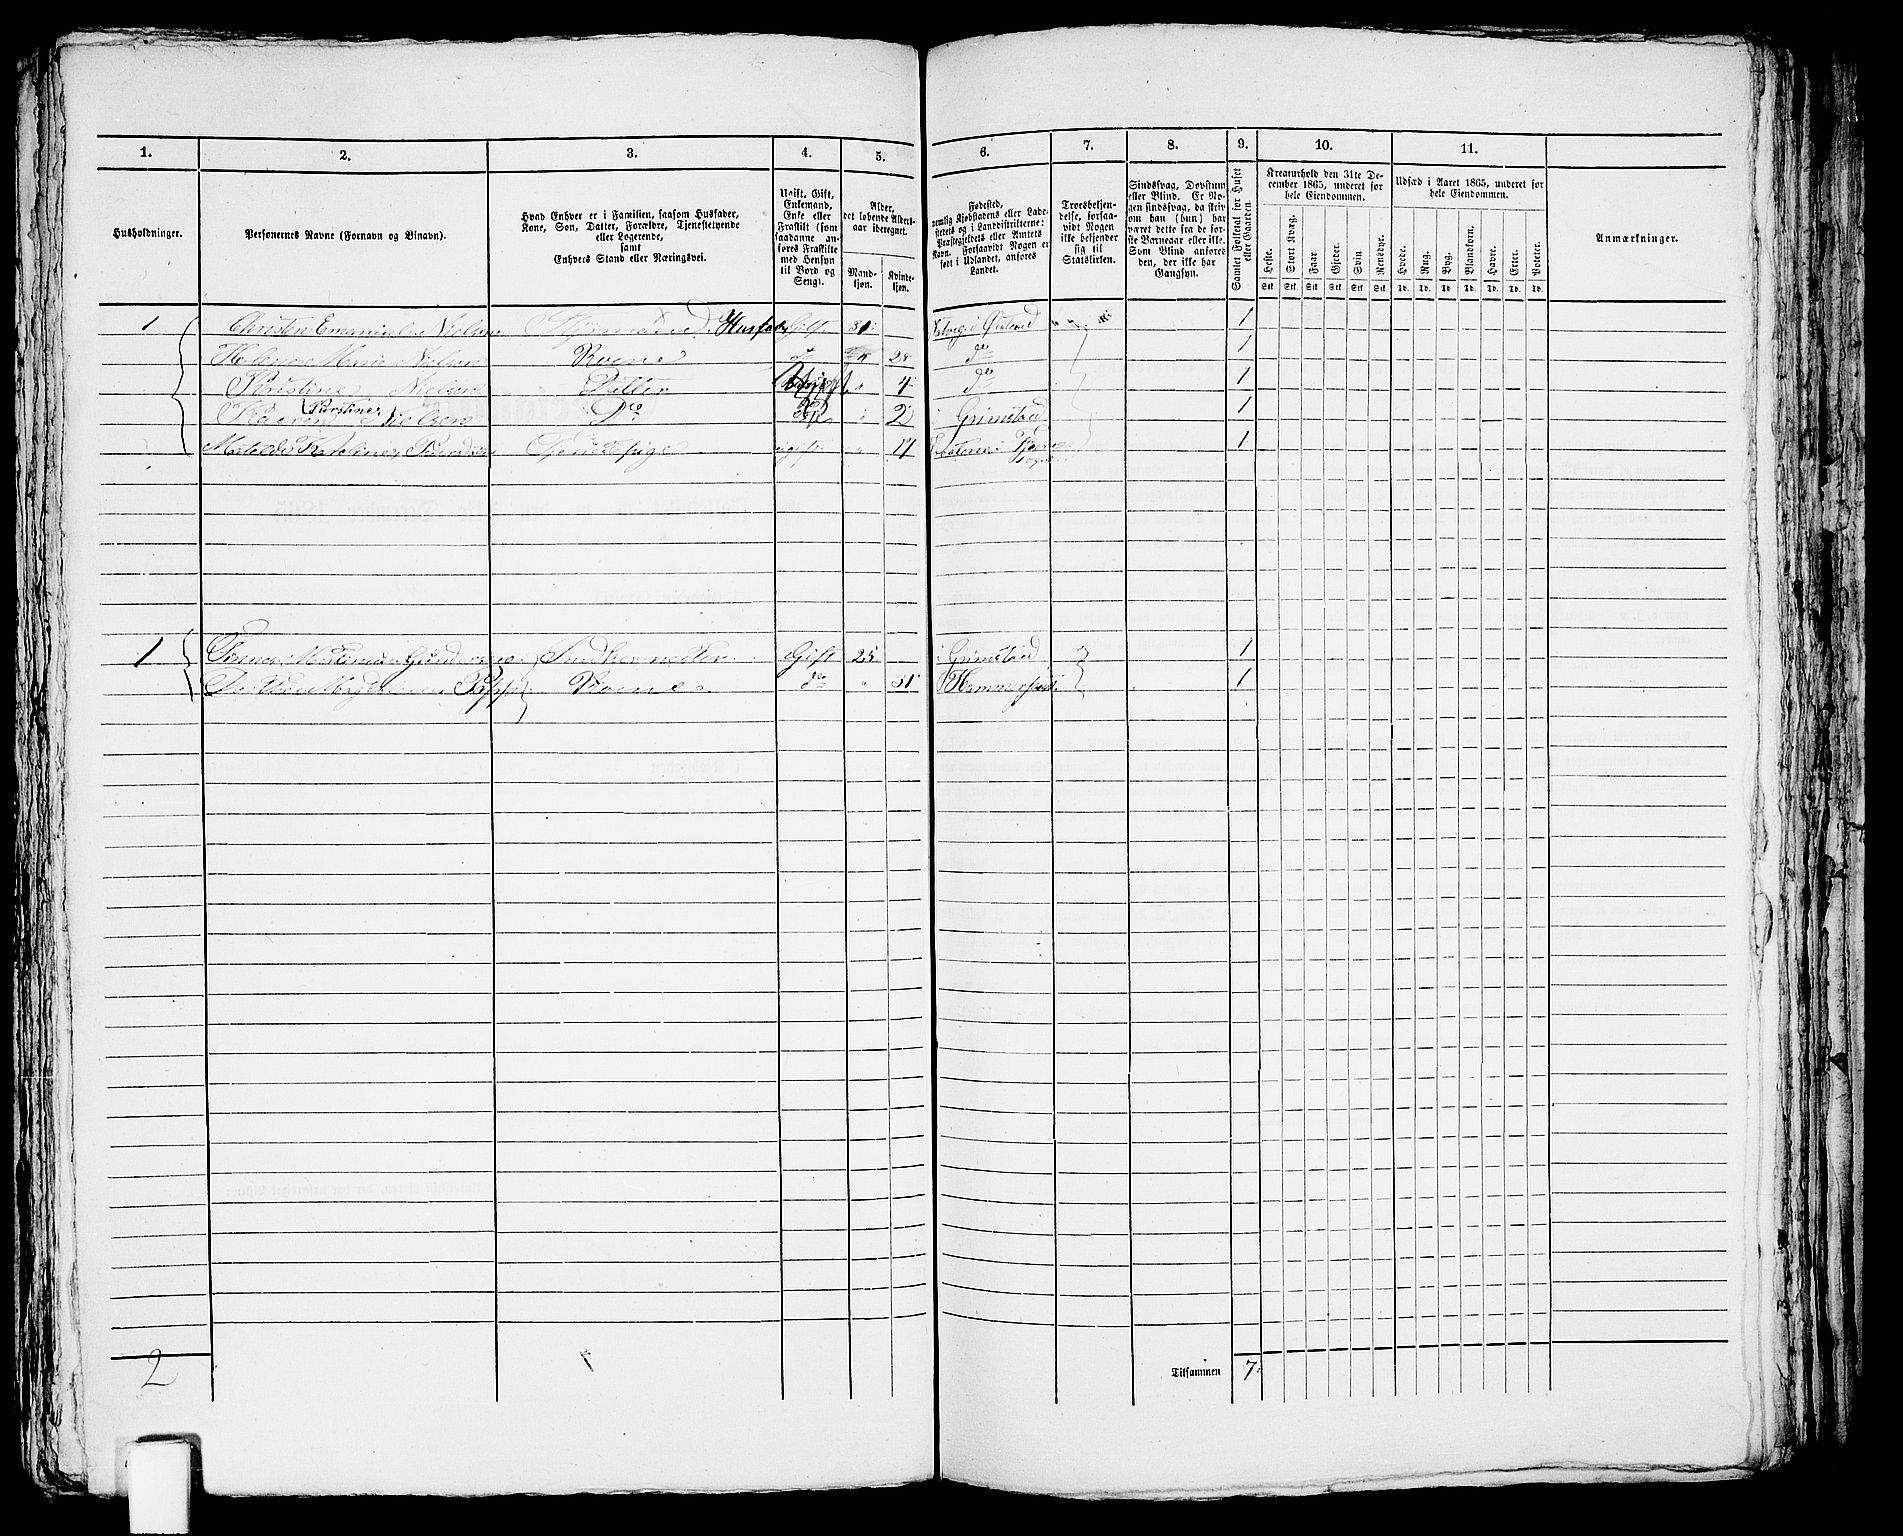 1. 2. 3. 4. 5. 6. 7. 8. 9. 10. 11.
Husholdninger.
Personernes Navne (Fornavn og Binavn).
Hvad Enhver er i Familien, saasom Husfader,
Kone, Søn, Datter, Forældre, Tjenestetyende
eller Logerende,
samt
Enhvers Stand eller Næringsvei.
Ugift, Gift,
Enkemand,
Enke eller
Fraskilt (som
saadanne an-
føres Fraskilte
med Hensyn
til Bord og
Seng).
Alder,
det løbende Alders-
aar iberegnet.
Mand-
kjøn.
Kvinde-
kjøn.
Fødested,
nemlig Kjøbstadens eller Lade-
stedets og i Landdistrikterne:
Præstegjeldets eller Amtets
Navn. Forsaavidt Nogen er
født i Udlandet, anføres
Landet.
Troesbekjen-
delse, forsaa-
vidt Nogen
ikke bekjender
sig til
Statskirken.
Sindssvag, Døvstum
eller Blind. Er No-
gen sindssvag, da skriv
om han (hun) har
været dette fra de før-
ste Barneaar eller ikke.
Som Blind anføres
den, der ikke har
Gangsyn.
Samlet Folketal for Huset
eller Gaarden
Kreaturhold den 31te De-
cember 1865, underet for
hele Eiendommen.
Heste.
Stort Kvæg.
Faar
Gjeder.
Svin
Rensdyr.
Stk Stk Stk Stk Stk Stk
Udsæd i Aaret 1865, underet for
hele Eiendommen.
Hvede.
Rug.
Byg.
Blandkorn.
Havre.
Erter.
Poteter.
Td. Td. Td Td. Td. Td. Td.
Anmærkninger.
1 Christen Emanuel Nielsen Husfader Gift 31 Øiestad 1
Helene Marie Nielsen Kone do 28 do 1
Kristine Nielsen Datter 4 do 1
Karen Kirstine Nielsen Do 2 i Grimstad 1
Karoline Tjenestepige ugift 17 1
1 Gift 25 i Grimstad 1
Kone do 31 Hammerfest 1
2
Tilsammen 7